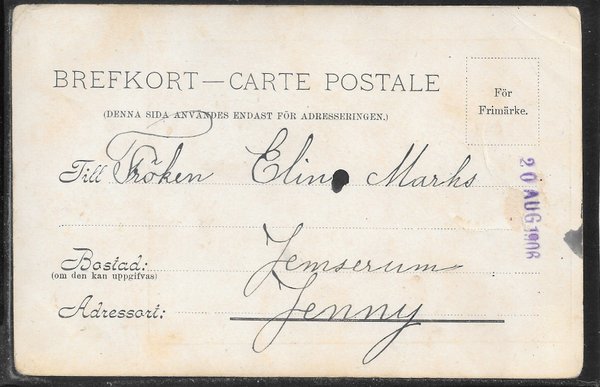 BREFKORT—CARTE POSTALE
(DENNA SIDA ANVÄNDES ENDAST FÖR ADRESSERINGEN.)
För
Frimärke.
Till Fröken Elin Marks
20 AUG 1906
Bostad: Jemserum
(om den kan uppgifvas)
Adressort: Jenny